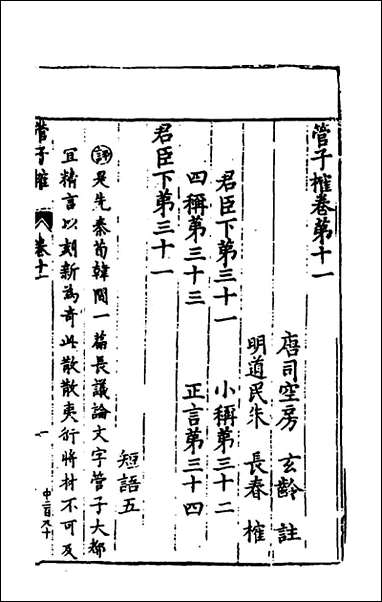 管子榷卷第十一
唐司空房 玄齡 註
明道民朱 長春 榷
君臣下第三十一 小稱第三十二
四稱第三十三 正言第三十四
君臣下第三十一
短語五
評是先秦荀韓間一篇長議論文字管子大都
冝精言以刻新為奇此散散夷衍將材不可及
管子榷 卷十一 一